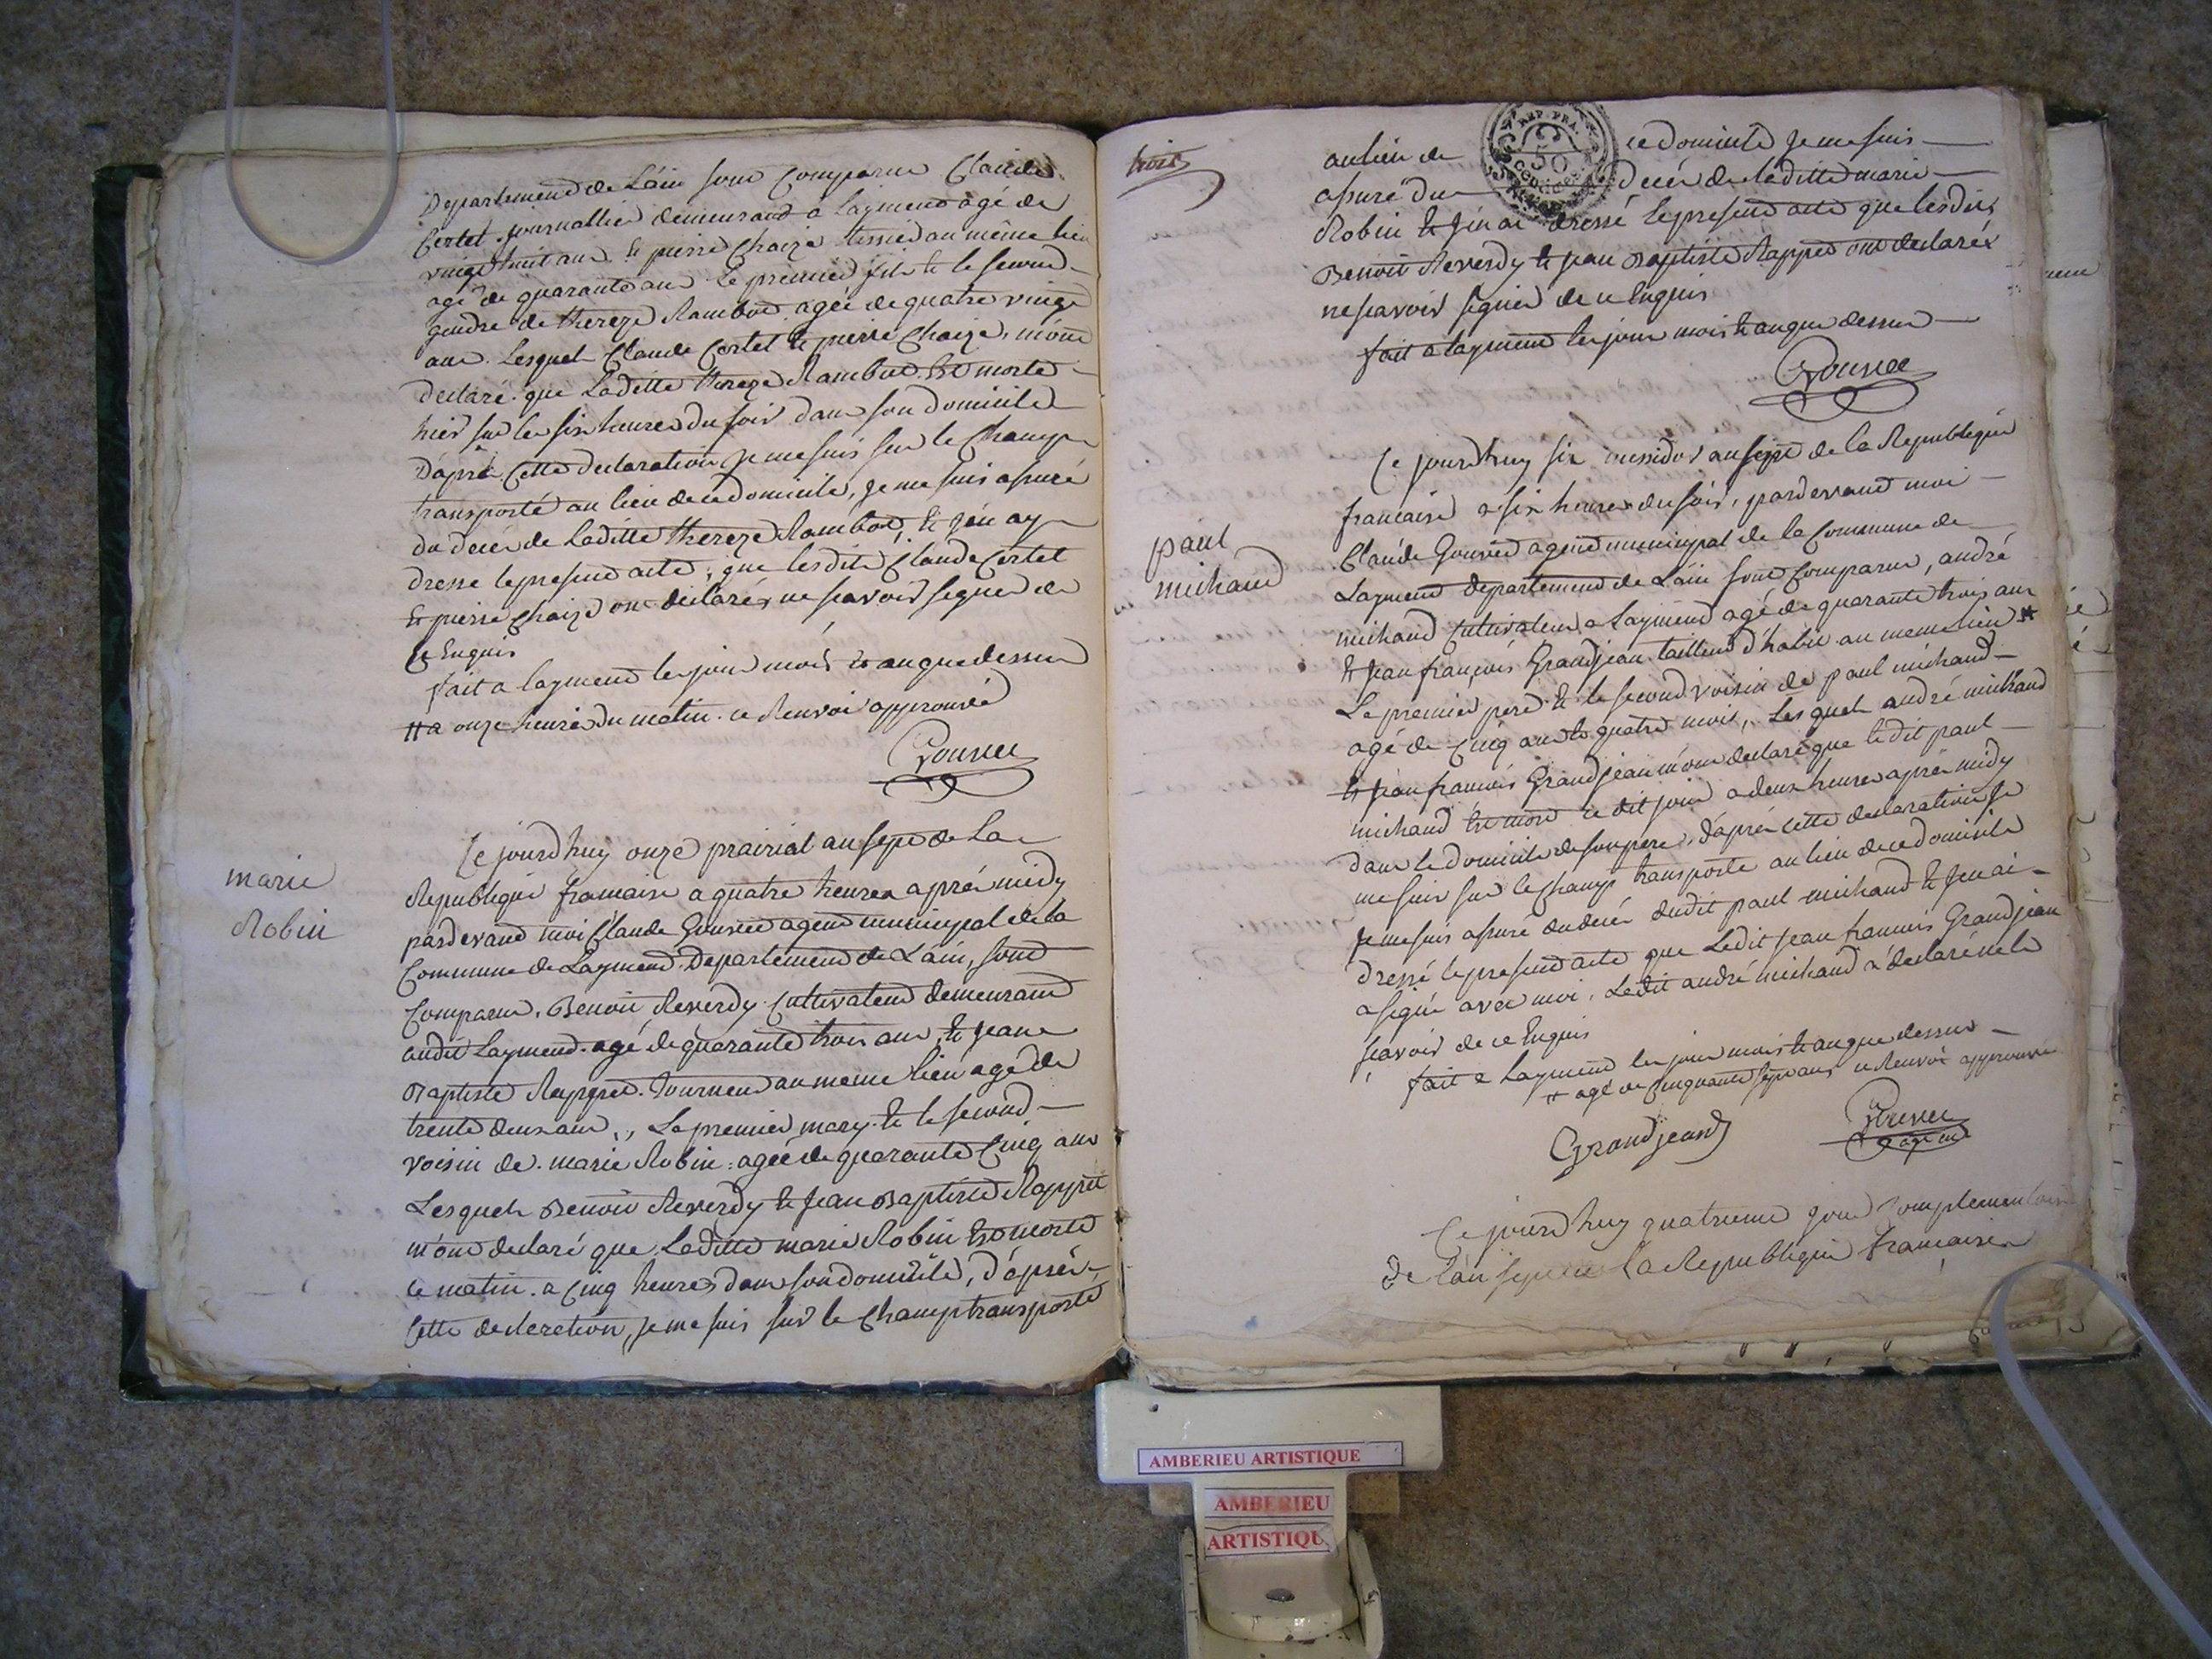 Departement de L'ain sont comparus Claude
Cortet journallier demeurant a Layment agé de
vingt huit ans et pierre Chaize tissier au même lieu
agé de quarante ans Le premier fils et le second
gendre de thereze Rambot agée de quatre vingt
ans Lesquels Claude Cortet et pierre Chaize m'ont
declaré que Laditte thereze Rambot Est morte
hier sur les six heures du soir dans son domicile
D'après Cette declaration je me suis sur le Champ
transporté au lieu de ce domicile, je me suis assuré
du decès de Laditte thereze Rambot, Et j'en ay
dressé le present acte, que lesdits Claude Cortet
Et pierre Chaize ont déclarés ne scavoir signer de
Ce Enquis
fait a layment les jour mois et an que dessus
# a onze heures du matin ce Renvoi approuvé
marie
Robin
Ce jourd'huy onze prairial an sept de La
Republique francaise a quatre heures après midy
pardevant moi Claude agent municipal de la
Commune de Layment Departement de L'ain, sont
Comparus, Benoit Reverdy Cultivateur demeurant
audit Layment agé de quarante trois ans, Et Jean
Baptiste tourneur au meme lieu agé de
trente deux ans, Le premier mary Et le second
voisin de marie Robin agée de quarante Cinq ans
Lesquels Benoit Reverdy Et Jean Baptiste
m'ont declaré que Laditte marie Robin Est morte
ce matin a Cinq heures dans son domicile, D'après
Cette declaration, je me suis sur le Champ transporté
trois
REP. FRA.
50
au lieu de ce domicile Je me suis
assuré du Decès de laditte marie
Robin Et j'en ai dressé le present acte que lesdits
Benoit Reverdy Et Jean Baptiste ont declarés
ne scavoir signer de ce Enquis
fait a layment les jour mois Et an que dessus
paul
michaud
Ce jourd'huy six messidor an sept de la Republique
francaise a six heures du soir, pardevant moi
Claude agent municipal de la Commune de
Layment departement de L'ain sont Comparus, andré
michaud Cultivateur a Layment agé de quarante trois ans
Et Jean françois Grandjean tailleur d'habit au meme lieu #
Le premier pere Et le second voisin de paul michaud
agé de Cinq ans Et quatre mois, Lesquels andré michaud
Et Jean francois Grandjean m'ont declaré que ledit paul
michaud Est mort ce dit jour a deux heures après midy
dans le domicile de son pere, D'après cette declaration Je
me suis sur le champ transporté au lieu de ce domicile
Je me suis assuré du decès dudit paul michaud Et J'en ai
dressé le present acte que Ledit Jean francois Grandjean
a signé avec moi, Ledit andré michaud a declaré ne le
scavoir de ce Enquis
fait a Layment les jour mois Et an que dessus
# agé de Cinquante sept ans ce Renvoi approuvé
Grandjean
agent
Ce jourd'huy quatrieme jour Complementaire
de l'an sept de la Republique francaise
AMBERIEU ARTISTIQUE
AMBERIEU
ARTISTIQU